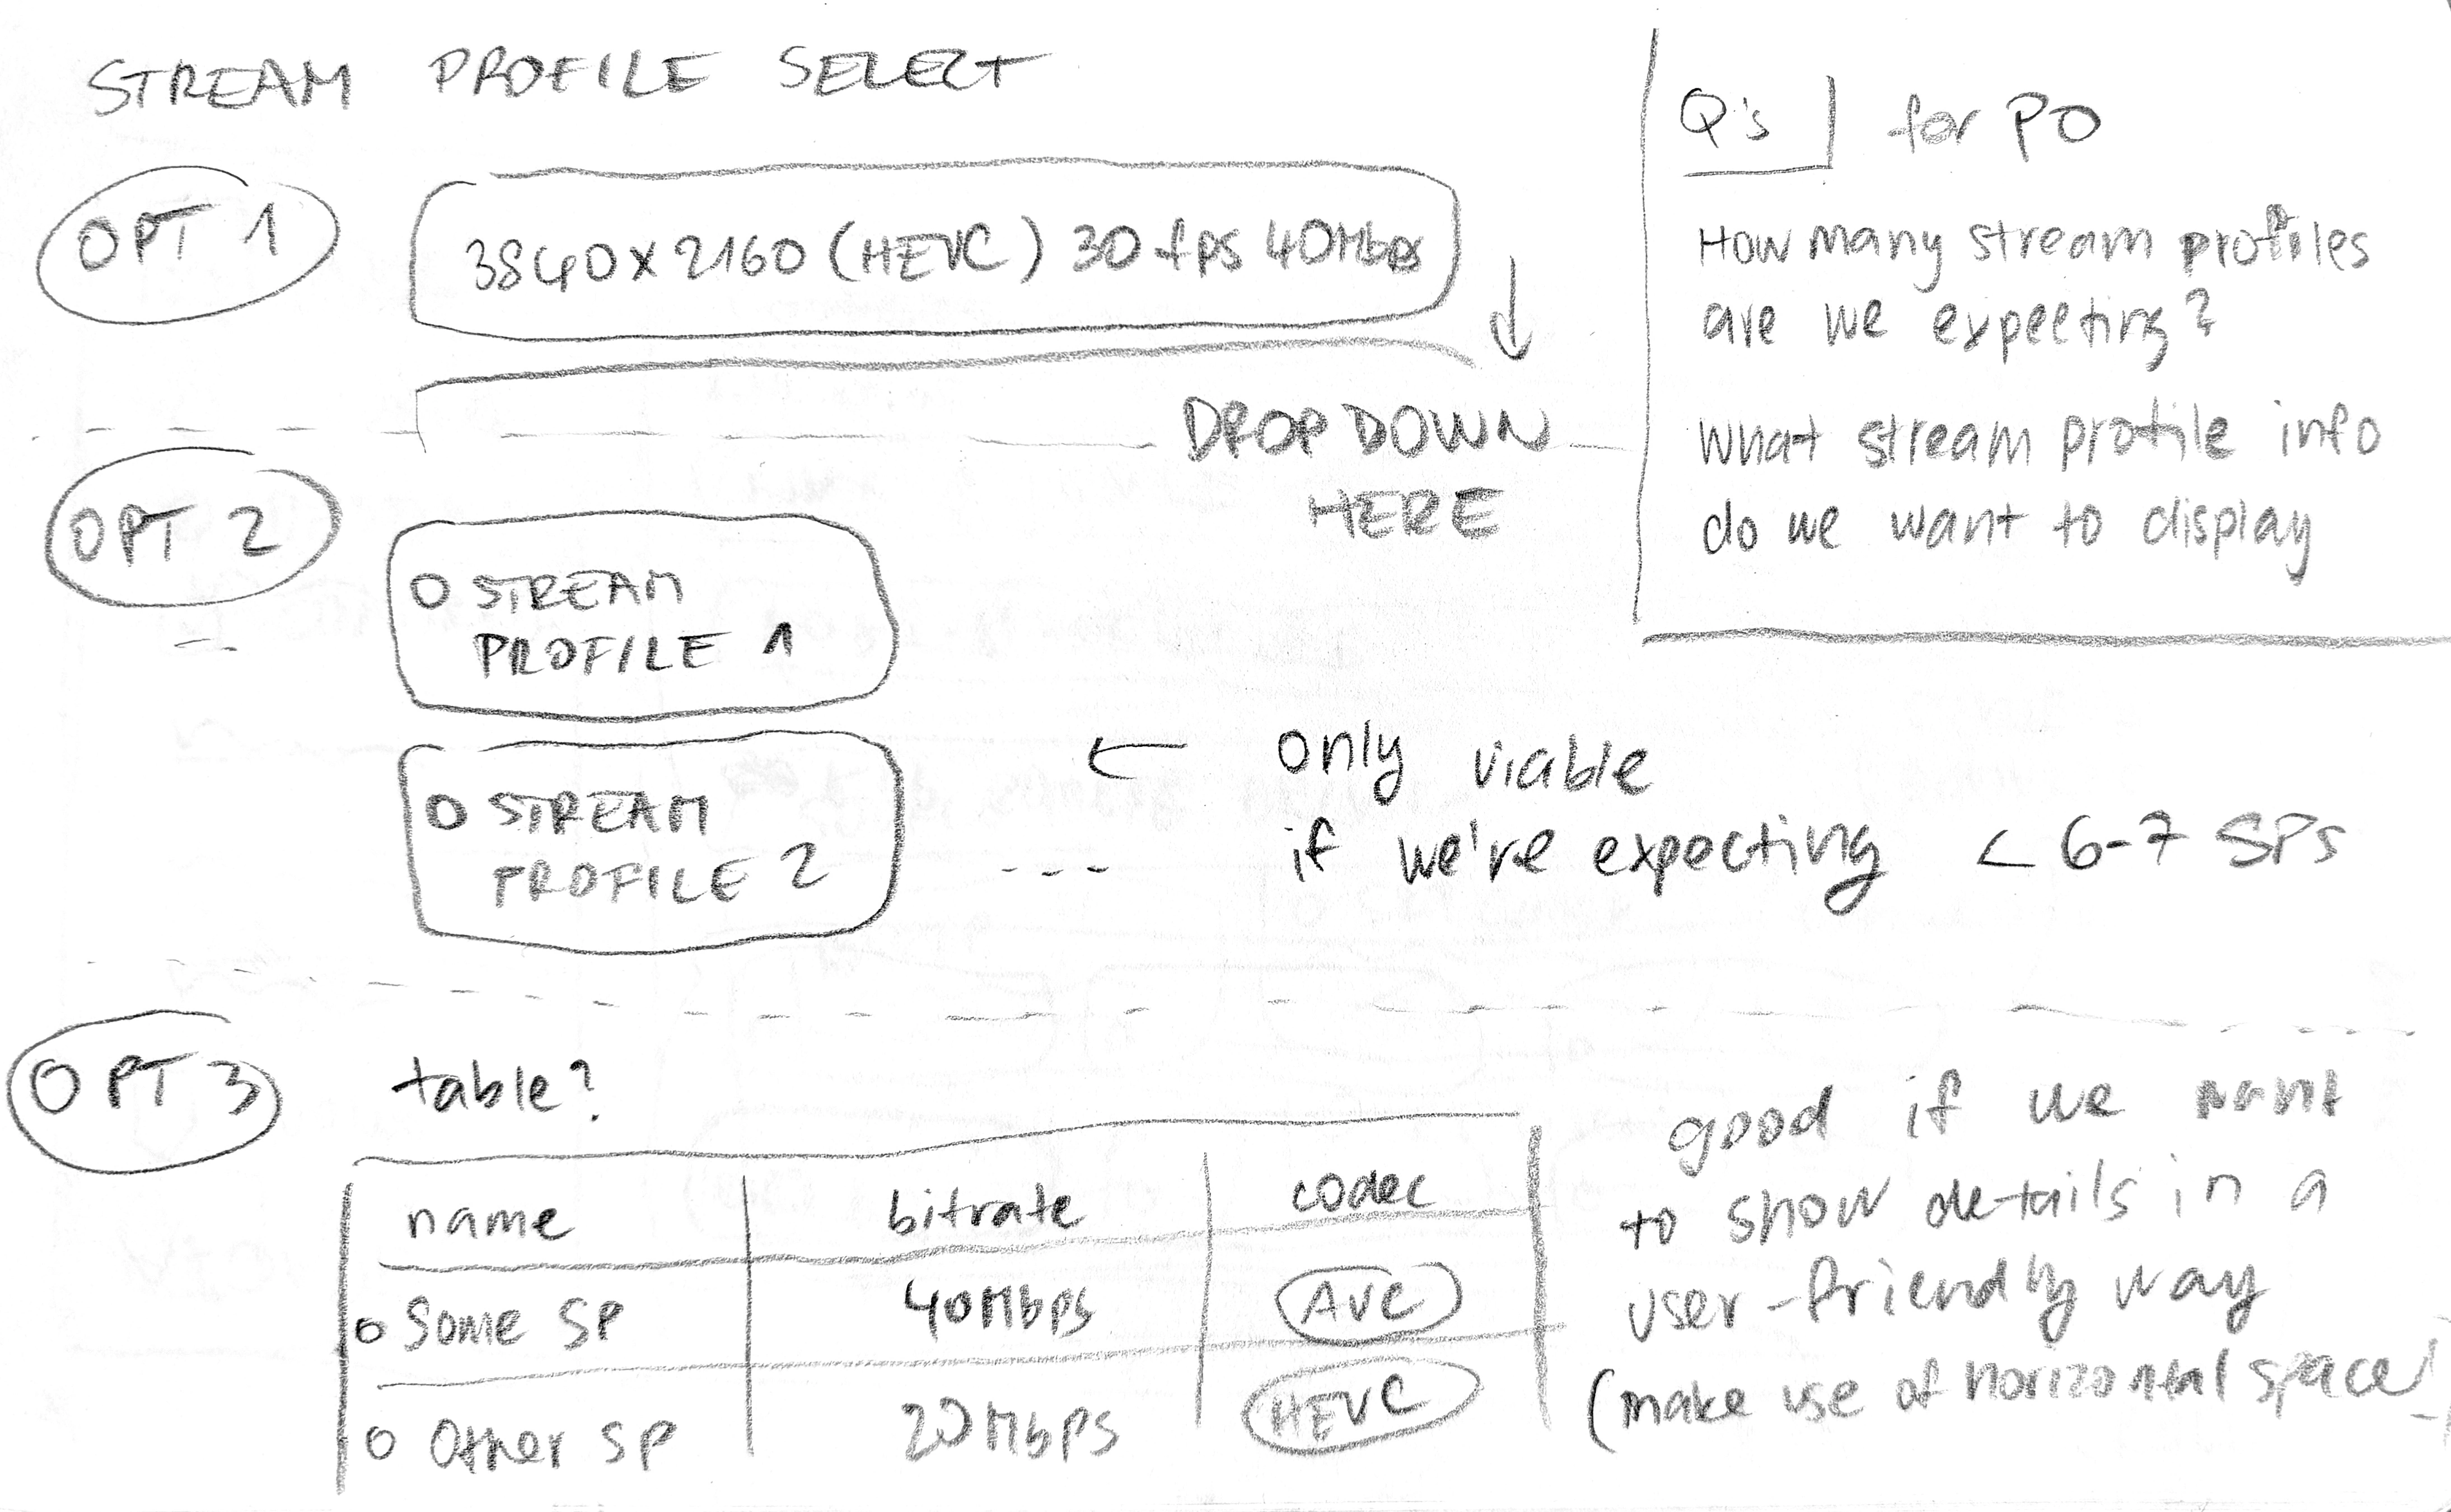 STREAM PROFILE SELECT
OPT 1
3840x2160 (HEVC) 30 fps 40Mbps
DROPDOWN
HERE
Q's for PO
How many stream profiles
are we expecting?
What stream profile info
do we want to display
OPT 2
STREAM
PROFILE 1
STREAM
PROFILE 2
...
← only viable
if we're expecting < 6-7 SPs
OPT 3
table?
name bitrate codec
Some SP 40Mbps AVC
Other SP 20Mbps HEVC
good if we want
to show details in a
user-friendly way
(make use of horizontal space)